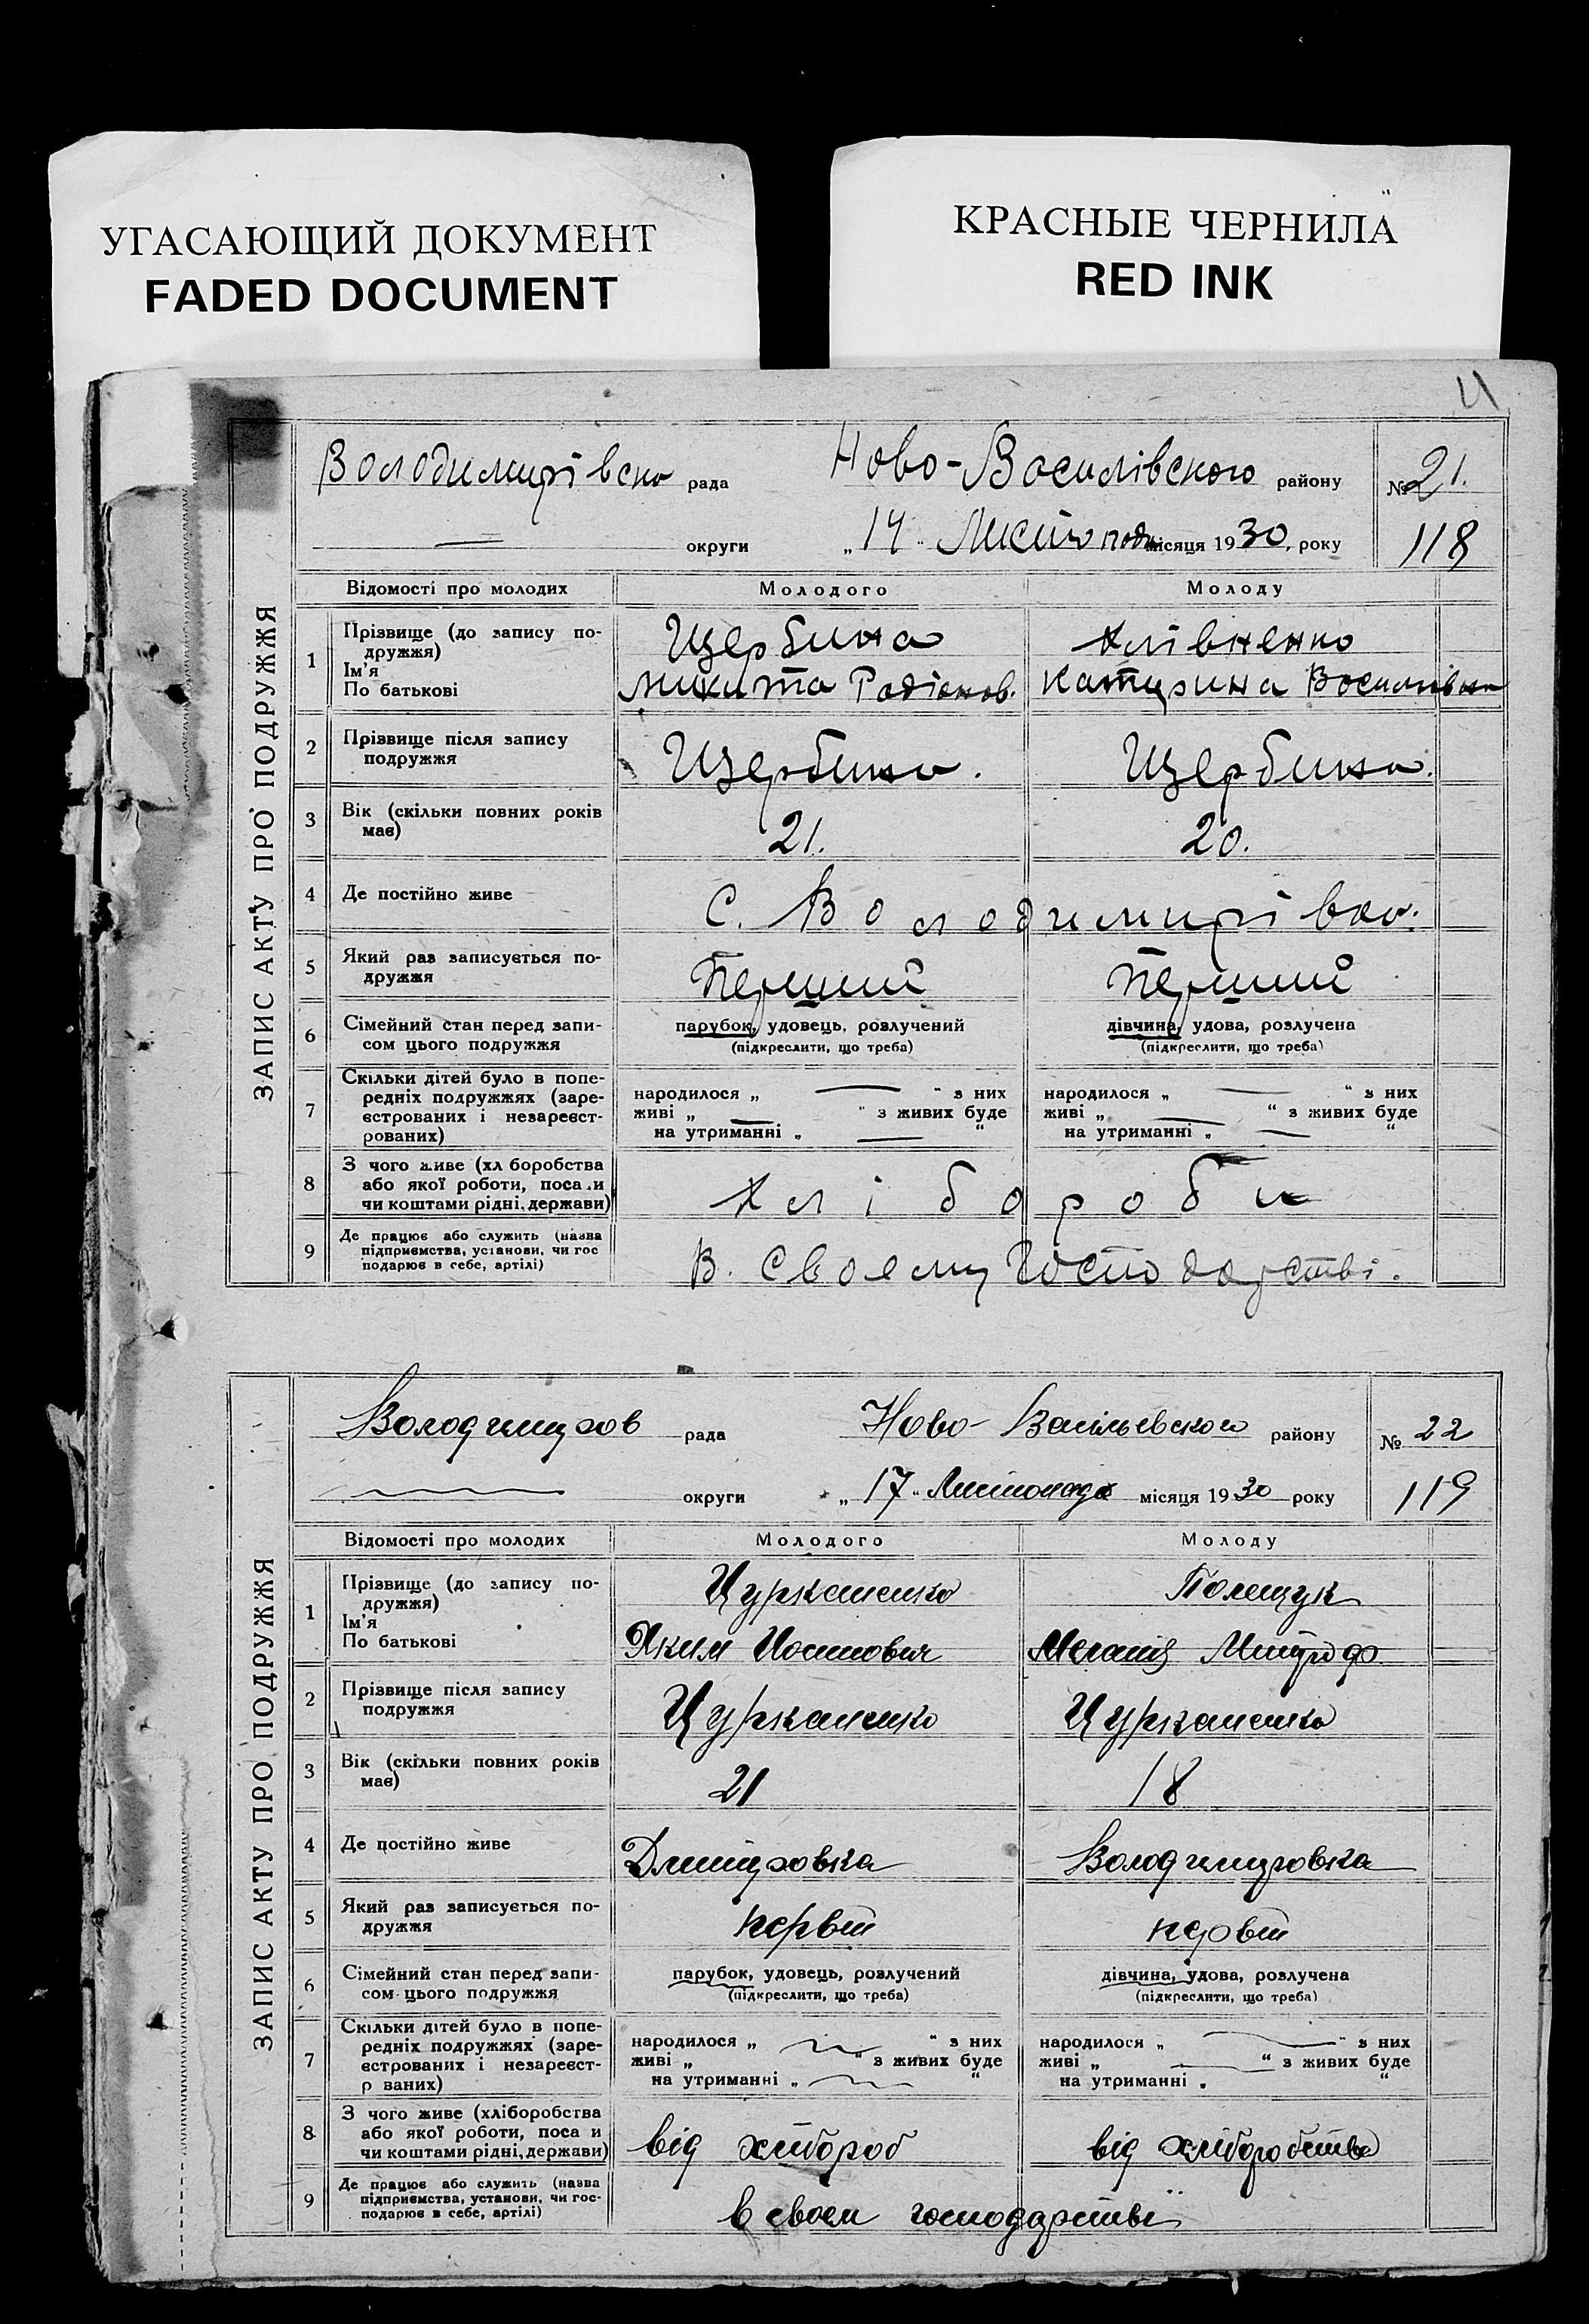 УГАСАЮЩИЙ ДОКУМЕНТ
FADED DOCUMENT
КРАСНЫЕ ЧЕРНИЛА
RED INK
ЗАПИС АКТУ ПРО ПОДРУЖЖЯ
Володимирівска рада Ново-Василівского району № 21.
округи „14“ Листопад місяця 1930, року 118
Відомості про молодих Молодого Молоду
1 Прізвище (до запису по-
дружжя)
Ім'я
По батькові
Щербина
Микита Родіонов.
Хлівненко
Катирина Василівна
2 Прізвище після запису
подружжя
Щербина. Щербина.
3 Вік (скільки повних років
має)
21. 20.
4 Де постійно живе С. Володимирівка.
5 Який раз записується по-
дружжя
Перший Перший
6 Сімейний стан перед запи-
сом цього подружжя
парубок, удовець, розлучений
(підкреслити, що треба)
дівчина, удова, розлучена
(підкреслити, що треба)
7 Скільки дітей було в попе-
редніх подружжях (заре-
єстрованих і незареєст-
рованих)
народилося „ — “ з них
живі „ — “ з живих буде
на утриманні „ — “
народилося „ — “ з них
живі „ — “ з живих буде
на утриманні „ — “
8 З чого живе (хл боробства
або якої роботи, поса и
чи коштами рідні, держави)
Хлібороби
9 Де працює або служить (назва
підприємства, установи, чи гос
подарює в себе, артілі)
В. Своему Господарстві.
ЗАПИС АКТУ ПРО ПОДРУЖЖЯ
Володимиров рада Ново-Васільевского району № 22
округи „17“ Листопада місяця 1930 року 119
Відомості про молодих Молодого Молоду
1 Прізвище (до запису по-
дружжя)
Ім'я
По батькові
Цурканенко
Яким Иосипович
Полещук
Меланія Митроф
2 Прізвище після запису
подружжя
Цурканенко Цурканенко
3 Вік (скільки повних років
має)
21 18
4 Де постійно живе Дмитровка Володимировка
5 Який раз записується по-
дружжя
первій первій
6 Сімейний стан перед запи-
сом цього подружжя
парубок, удовець, розлучений
(підкреслити, що треба)
дівчина, удова, розлучена
(підкреслити, що треба)
7 Скільки дітей було в попе-
редніх подружжях (заре-
єстрованих і незареєст-
р ваних)
народилося „ — “ з них
живі „ “ з живих буде
на утриманні „ — “
народилося „ — “ з них
живі „ — “ з живих буде
на утриманні „ “
8 З чого живе (хліборобства
або якої роботи, поса и
чи коштами рідні, держави)
від хлібороб від хліборобства
9 Де працює або служить (назва
підприємства, установи, чи гос-
подарює в себе, артілі)
в своем господарстві